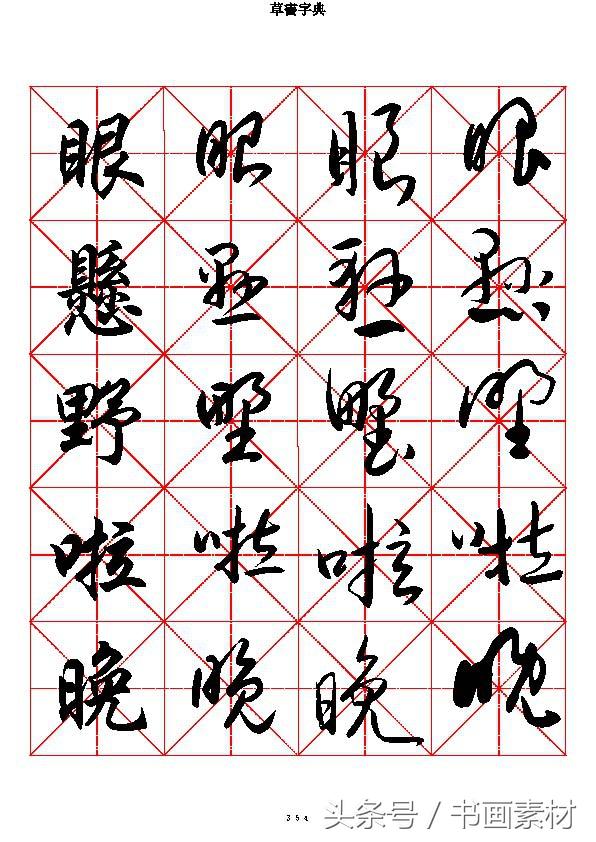 草書字典
眼 眼 眼 眼
懸 懸 懸 懸
野 野 野 野
啦 啦 啦 啦
晚 晚 晚 晚
354
头条号 / 书画素材